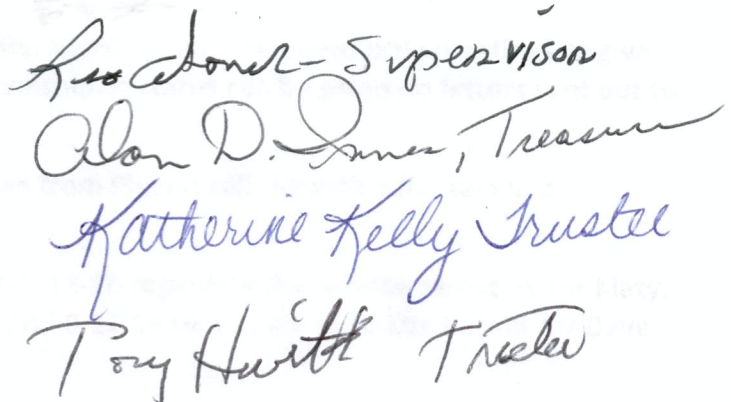 - Supervisor
Alan D. Innes, Treasurer
Katherine Kelly Trustee
Tony Trustee